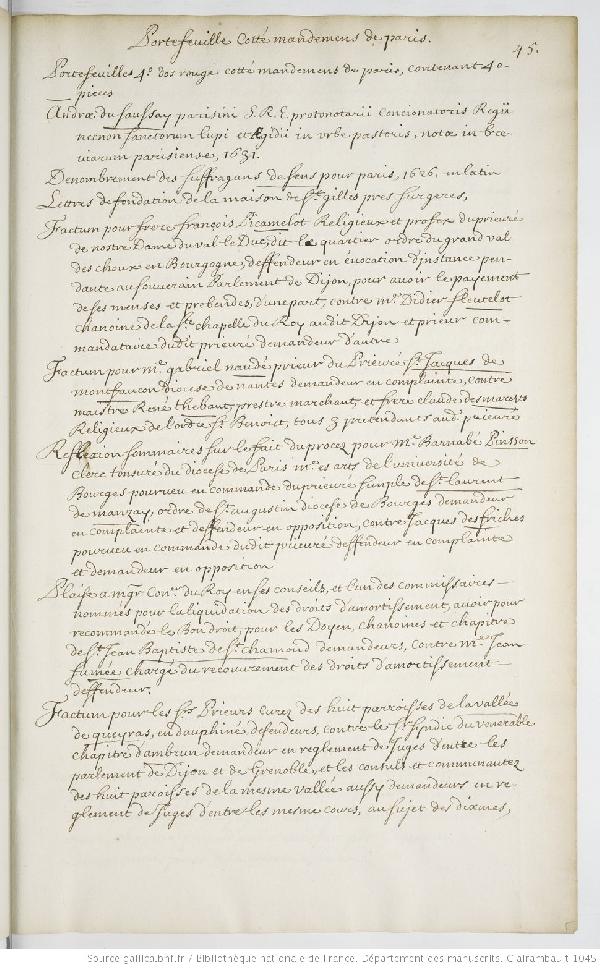 Portefeuille Cotté mandemens de paris.
45.
Portefeuilles 4º. dos rouge cotté mandemens de paris, contenant 40
pieces
Andreæ du saussay parisini S. R. E. protonotarii Concionatoris Regii
necnon sanctorum lupi et Ægidii in urbe pastoris, notæ in bre-
viarum parisiense, 1631.
Denombrement des suffragans de sens pour paris, 1626, en latin
Lettres de fondation de la maison de St. gilles pres surgeres,
Factum pour frere françois Picamelot Religieux et profes du prieuré
de nostre Dame du val le Duc, dit le quartier ordre du grand val
des choux en Bourgogne, deffendeur en evocation d'instance pen-
dante au souverain Parlement de Dijon, pour avoir le payement
de ses menses et prebendes, d'une part, contre mr. Didier
chanoine de la Ste. chapelle du Roy audit Dijon et prieur com-
mandataire dudit prieuré demandeur d'autre
Factum pour mr. gabriel naudé prieur du Prieuré St. Jacques de
montfaucon Diocese de nantes demandeur en complainte, contre
maistre René Thebaut, prestre marchant, et frere claude des marets
Religieux de l'ordre St. Benoist, tous 3 pretendants aud. prieuré
Reflexion sommaires sur le fait du procez pour mr. Barnabé Pinsson
clerc tonsuré du diocese de Paris me. es arts de l'université de
Bourges pourveu en commande du prieuré simple de St. laurent
de manzay, ordre de St. augustin diocese de Bourges demandeur
en complainte et deffendeur en opposition, contre Jacques des friches
pourveu en commande dudit prieuré deffendeur en complainte
et demandeur en opposition
Plaise a mgr Conr. du Roy en ses conseils, et l'un des commissaires
nommés pour la liquidation des droits d'amortissement, avoir pour
recommandé le Bon droit, pour les Doyen, chanoines et chapitre
de St. Jean Baptiste de St. chamond demandeurs, contre me. Jean
fumée chargé du recouvrement des droits d'amortissement
deffendeur.
Factum pour les srs. Prieurs curez des huit parroisses de la vallée
de queyras, en dauphiné, defendeurs, contre le Sr. syndic du venerable
chapitre d'ambrun demandeur en reglement de Juges d'entre les
parlement de Dijon et de Grenoble, et les consuls et communautez
des huit paroisses de la mesme vallée aussy demandeurs en re-
glement de Juges d'entre les mesme cours, au sujet des dixmes,
Source gallica.bnf.fr / Bibliothèque nationale de France. Département des manuscrits. Clairambault 1045